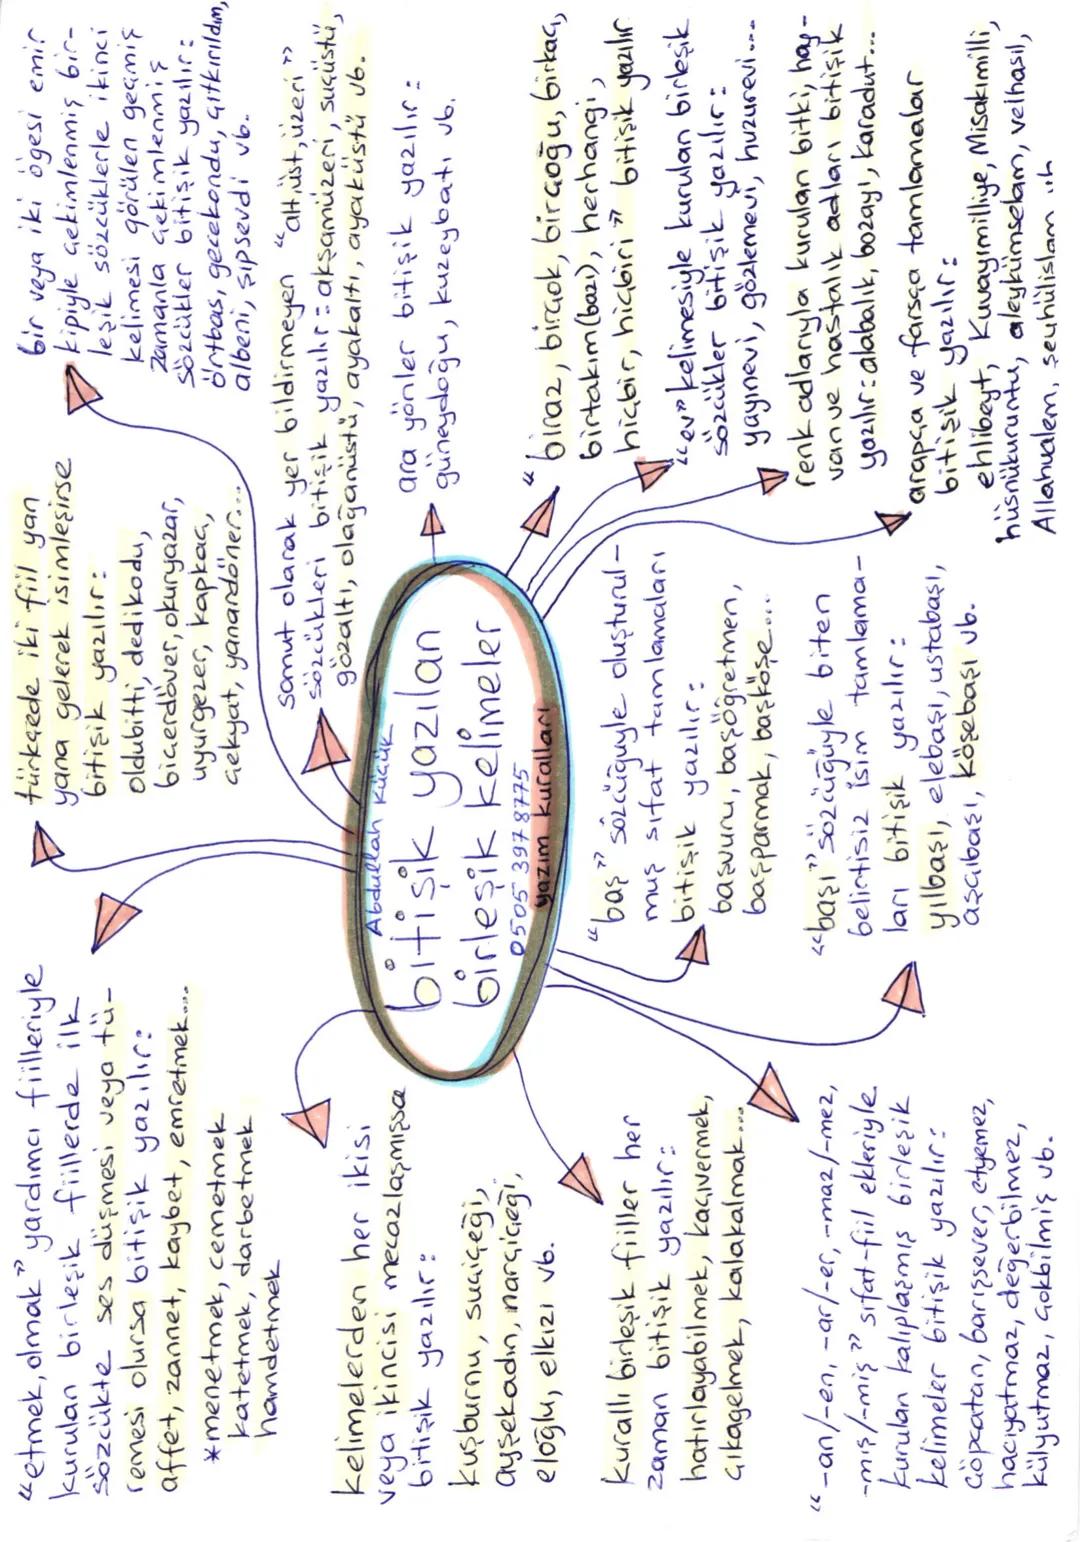 "etmek, olmak" yardımcı fiilleriyle
kurulan birleşik fiillerde ilk
sözcükte ses düşmesi veya tü-
remesi olursa bitişik yazılır:
affet, zannet, kaybet, emretmek...
*menetmek, cemetmek
katetmek, darbetmek
hamdetmek
türkçede iki fiil yan
yana gelerek isimleşirse
bitişik yazılır:
oldubitti, dedikodu,
biçerdöver, okuryazar,
uyurgezer, kapkaç,
çekyat, yanardöner...
bir veya iki ögesi emir
kipiyle çekimlenmiş bir-
leşik sözcüklerle ikinci
kelimesi görülen geçmiş
zamanla çekimlenmiş
sözcükler bitişik yazılır:
örtbas, gecekondu, çıtkırıldım,
albeni, şıpsevdi vb.
somut olarak yer bildirmeyen "alt,üst,üzeri"
sözcükleri bitişik yazılır: akşamüzeri, suçüstü,
gözaltı, olağanüstü, ayakaltı, ayaküstü vb.
ara yönler bitişik yazılır:
güneydoğu, kuzeybatı vb.
Abdullah Küçük
bitişik yazılan
birleşik kelimeler
0505 397 8775
yazım kuralları
kelimelerden her ikisi
veya ikincisi mecazlaşmışsa
bitişik yazılır:
kuşburnu, suçiçeği,
ayşekadın, narçiçeği,
eloğlu, elkızı vb.
kurallı birleşik fiiller her
zaman bitişik yazılır:
hatırlayabilmek, kaçıvermek,
çıkagelmek, kalakalmak...
"-an/-en, -ar/-er, -maz/-mez,
-mış/-miş" sıfat-fiil ekleriyle
kurulan kalıplaşmış birleşik
kelimeler bitişik yazılır:
çöpçatan, barışsever, etyemez,
hacıyatmaz, değerbilmez,
külyutmaz, çokbilmiş vb.
"baş" sözcüğüyle oluşturul-
muş sıfat tamlamaları
bitişik yazılır:
başvuru, başöğretmen,
başparmak, başköşe...
"başı" sözcüğüyle biten
belirtisiz isim tamlama-
ları bitişik yazılır:
yılbaşı, elebaşı, ustabaşı,
aşçıbaşı, köşebaşı vb.
"biraz, birçok, birçoğu, birkaç,
birtakım(bazı), herhangi,
hiçbir, hiçbiri" bitişik yazılır
"ev" kelimesiyle kurulan birleşik
sözcükler bitişik yazılır:
yayınevi, gözlemevi, huzurevi...
renk adlarıyla kurulan bitki, hay-
van ve hastalık adları bitişik
yazılır: alabalık, bozayı, karadut...
arapça ve farsça tamlamalar
bitişik yazılır:
ehlibeyt, Kuvayımilliye, Misakımilli,
hüsnükuruntu, aleykümselam, velhasıl,
Allahualem, şeyhülislam